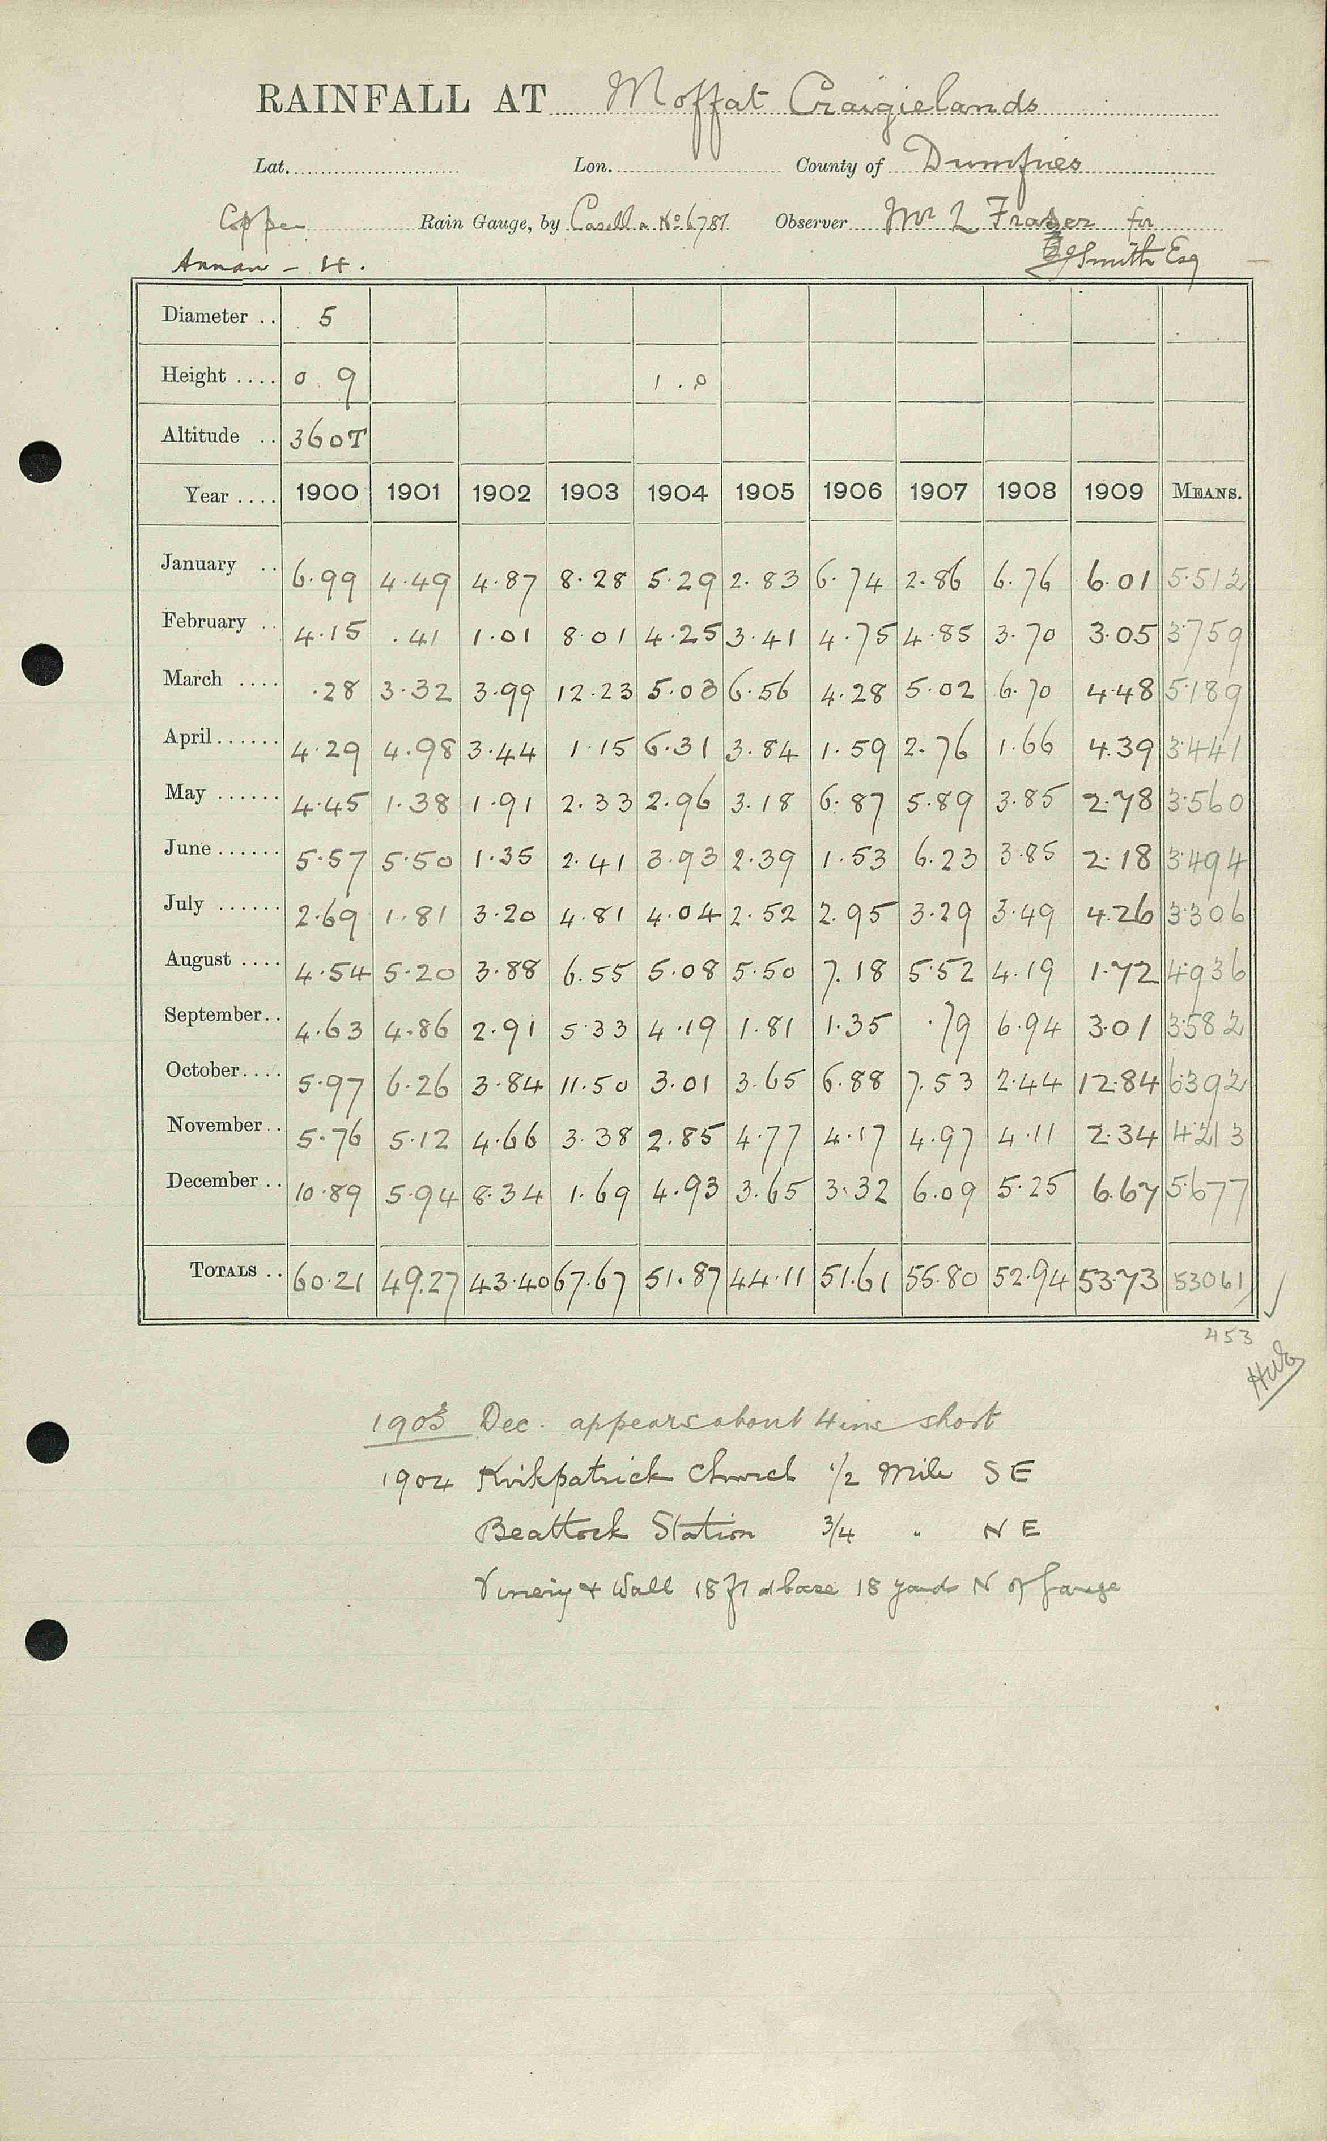 RAINFALL AT Moffat Craigielands
Lat. Lon. County of Dumfries
Copper Rain Gauge, by Casella No 6787 Observer Mr L Fraser for
Annan - 14. Smith Esq
Diameter .. 5
Height .... 0. 9 1.0
Altitude .. 360T
Year .... 1900 1901 1902 1903 1904 1905 1906 1907 1908 1909 MEANS.
January .. 6.99 4.49 4.87 8.28 5.29 2.83 6.74 2.86 6.76 6.01 5.512
February .. 4.15 .41 1.01 8.01 4.25 3.41 4.75 4.85 3.70 3.05 3759
March .... .28 3.32 3.99 12.23 5.03 6.56 4.28 5.02 6.70 4.48 5.189
April...... 4.29 4.98 3.44 1.15 6.31 3.84 1.59 2.76 1.66 4.39 3.441
May ...... 4.45 1.38 1.91 2.33 2.96 3.18 6.87 5.89 3.85 2.78 3.560
June...... 5.57 5.50 1.35 2.41 3.93 2.39 1.53 6.23 3.85 2.18 3.494
July ...... 2.69 1.81 3.20 4.81 4.04 2.52 2.95 3.29 3.49 4.26 3.306
August .... 4.54 5.20 3.88 6.55 5.08 5.50 7.18 5.52 4.19 1.72 4.936
September.. 4.63 4.86 2.91 5.33 4.19 1.81 1.35 .79 6.94 3.01 3.582
October.... 5.97 6.26 3.84 11.50 3.01 3.65 6.88 7.53 2.44 12.84 6.392
November.. 5.76 5.12 4.66 3.38 2.85 4.77 4.17 4.97 4.11 2.34 4.213
December .. 10.89 5.94 8.34 1.69 4.93 3.65 3.32 6.09 5.25 6.67 5.677
TOTALS .. 60.21 49.27 43.40 67.67 51.87 44.11 51.61 55.80 52.94 53.73 53061
453
1903 Dec. appears about 4 ins short
1904 Kirkpatrick Church 1/2 Mile S E
Beattock Station 3/4 " N E
Vinery & Wall 18 ft above 18 yards N of Gauge